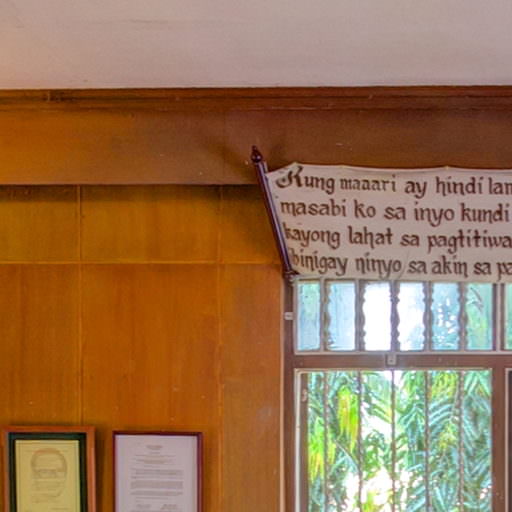 Kung maaari ay hindi lan
masabi ko sa inyo kundi
kayong lahat sa pagtitiwa
binigay ninyo sa akin sa pa